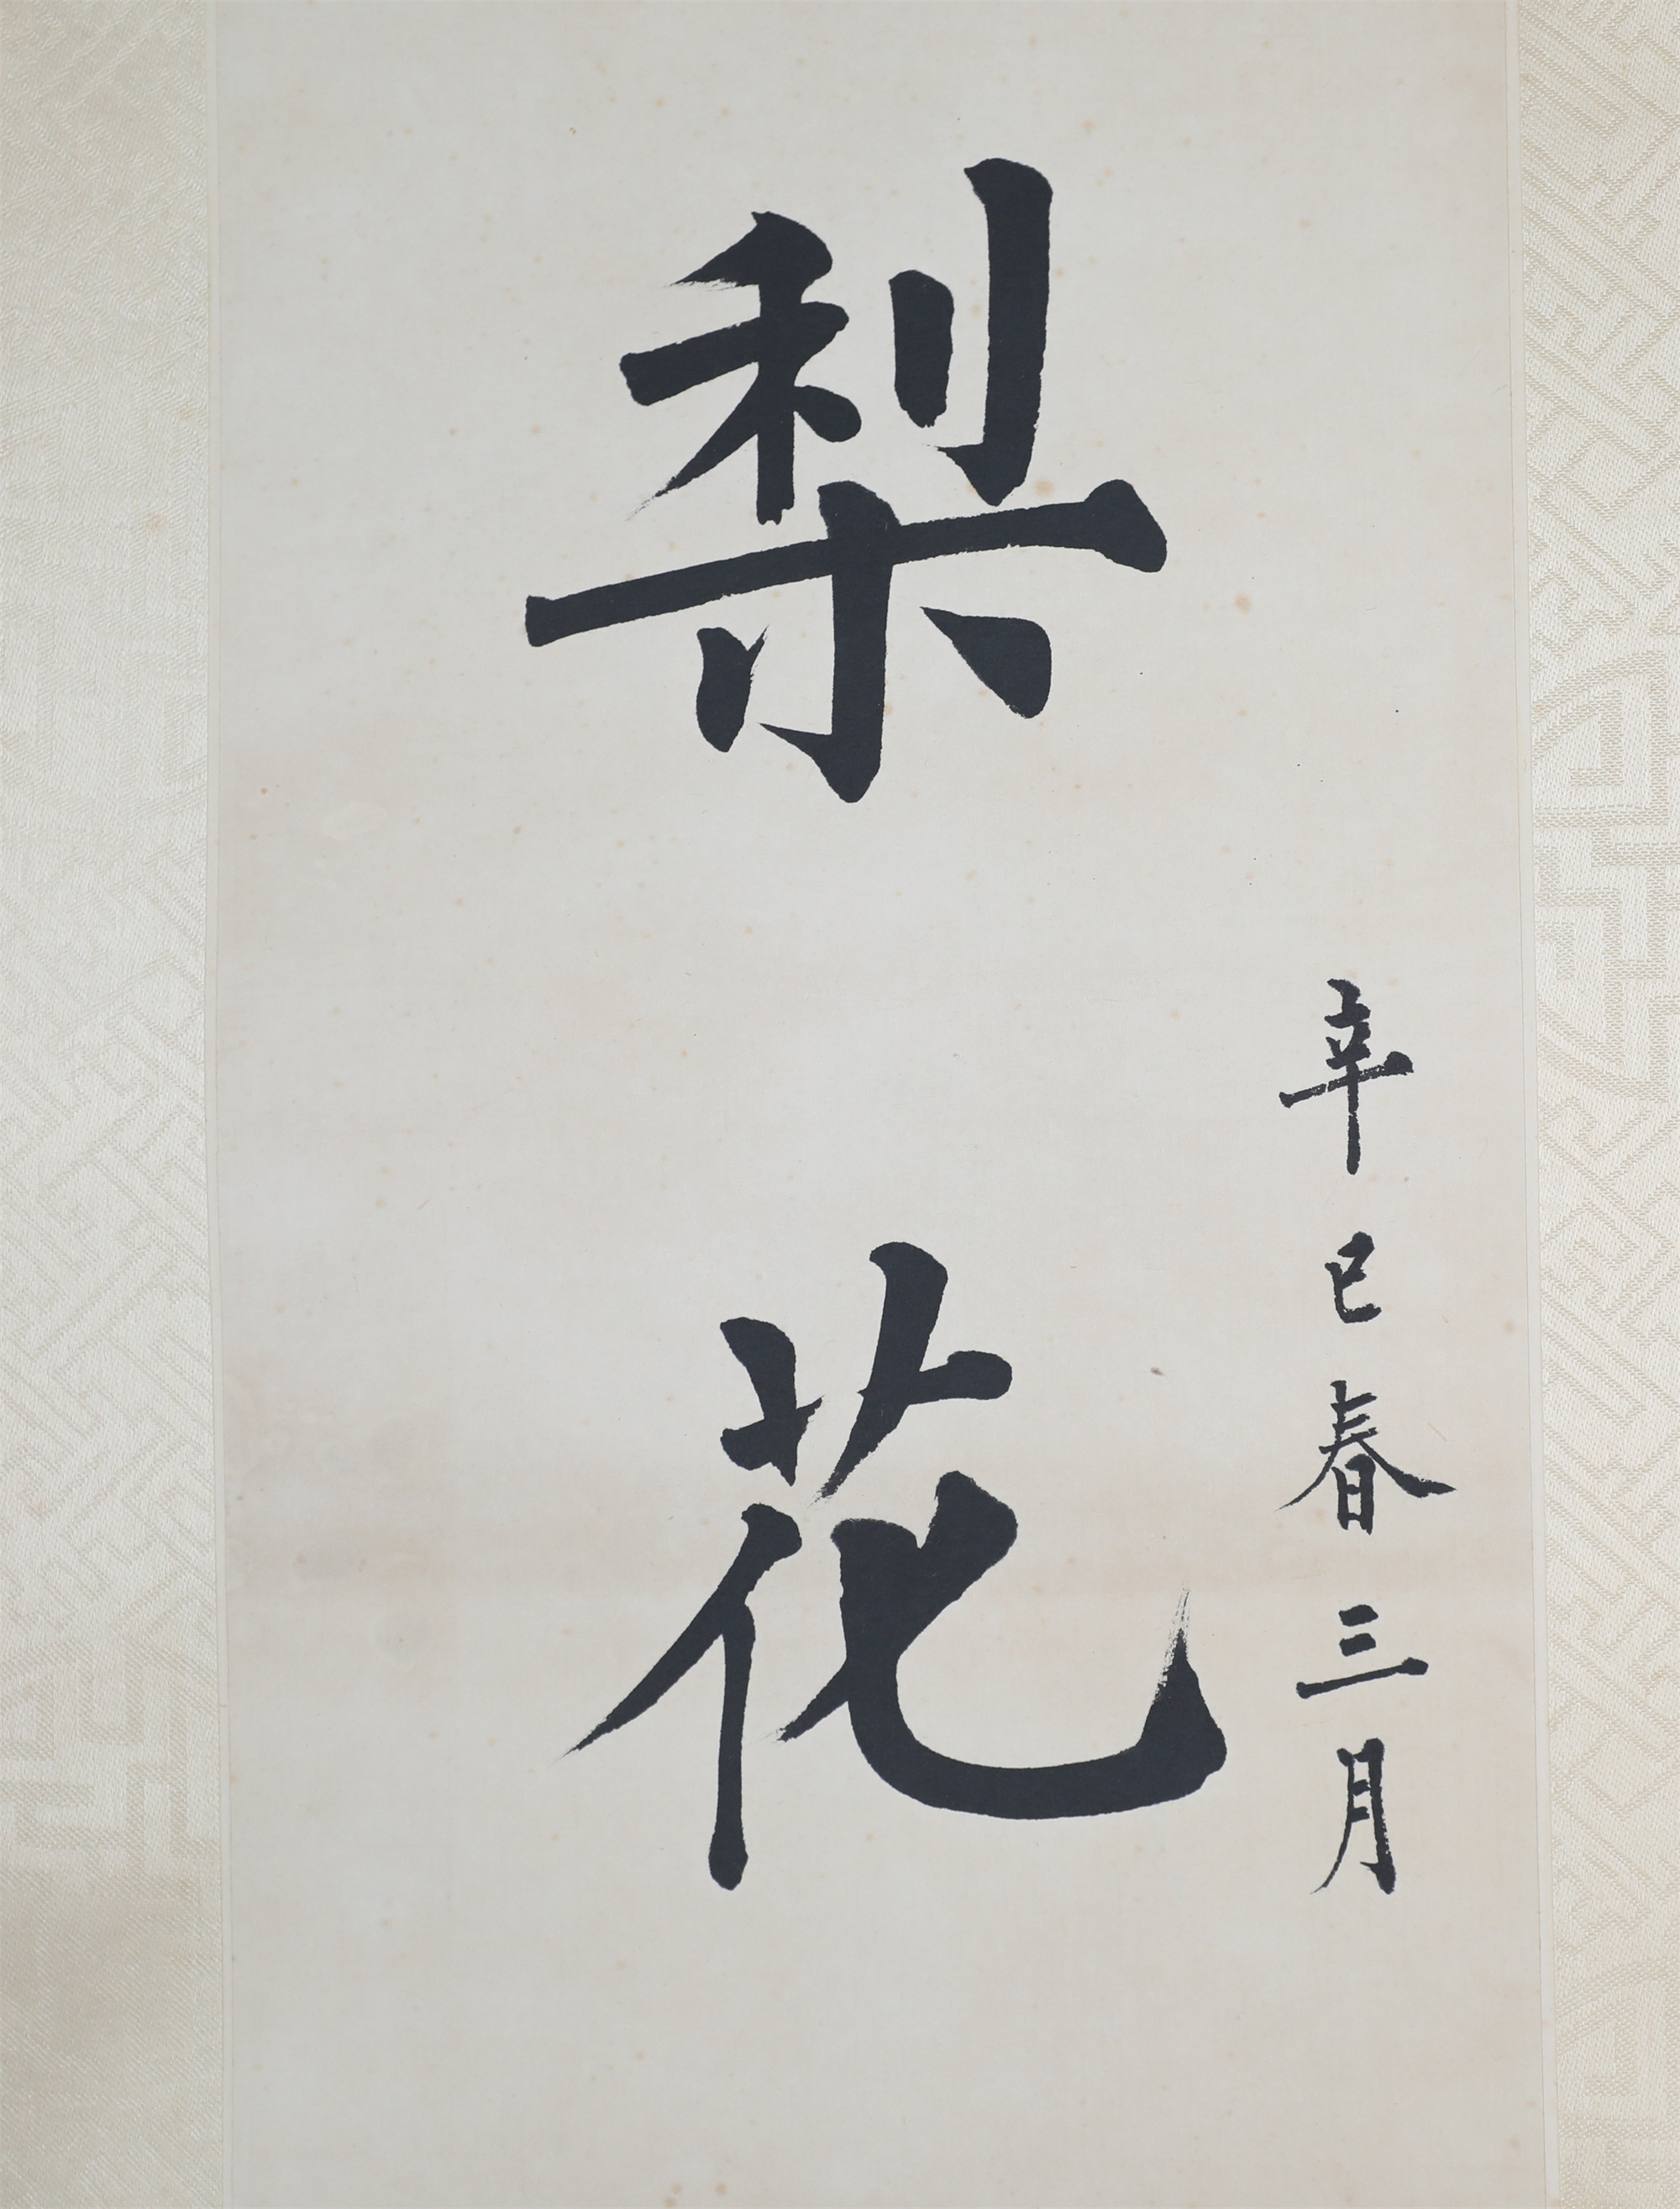 辛巳春三月
梨花